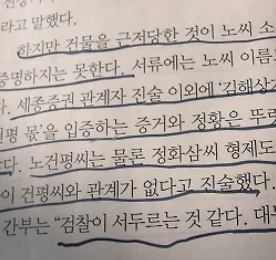 라고 말했다.
하지만 건물을 근저당한 것이 노씨 소
증명하지는 못한다. 서류에는 노씨 이름
다. 세종증권 관계자 진술 이외에 '김해상
평 몫'을 입증하는 증거와 정황은 뚜렷
다. 노건평씨는 물론 정화삼씨 형제도
이 건평씨와 관계가 없다고 진술했다.
간부는 "검찰이 서두르는 것 같다. 대